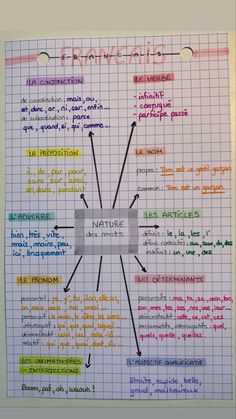 FRANÇAIS
F-R-A-N-Ç-A-I-S
LA CONJONCTION
de coordination: mais, ou,
et, donc, or, ni, car, enfin...
de subordination: parce
que, quand, si, qui, comme...
LE VERBE
- infinitif
- conjugué
- participe passé
LA PRÉPOSITION
à, de, par, pour
sans, sur, avec,
en, dans, pendant
LE NOM
propre: Tom est un gentil garçon
commun: Tom est un garçon
L'ADVERBE
bien, très, vite,
mais, moins, peu,
ici, brusquement
NATURE
des mots
LES ARTICLES
définis: le, la, les, l'
définis contractés: au, aux, du, des
indéfinis: un, une, des
LE PRONOM
personnel: je, j', tu, il
on, nous, vous
possessif: le mien, le
interrogatif: qui, que, quoi
démonstratif: celui,
relatif: qui, que, quoi, dont, où...
LES DÉTERMINANTS
possessifs: ma, ta, sa, mon, ton,
son, mes, tes, ses, nos, vos, leur...
démonstratifs: cette, ce, cet, ces
exclamatifs, interrogatifs: quel,
quels, quelle, quelles
LES ONOMATOPÉES
- INTERJECTIONS
Boum, paf, oh, waouh!
L'ADJECTIF QUALIFICATIF
étroits, rapide, belle,
grand, malheureux